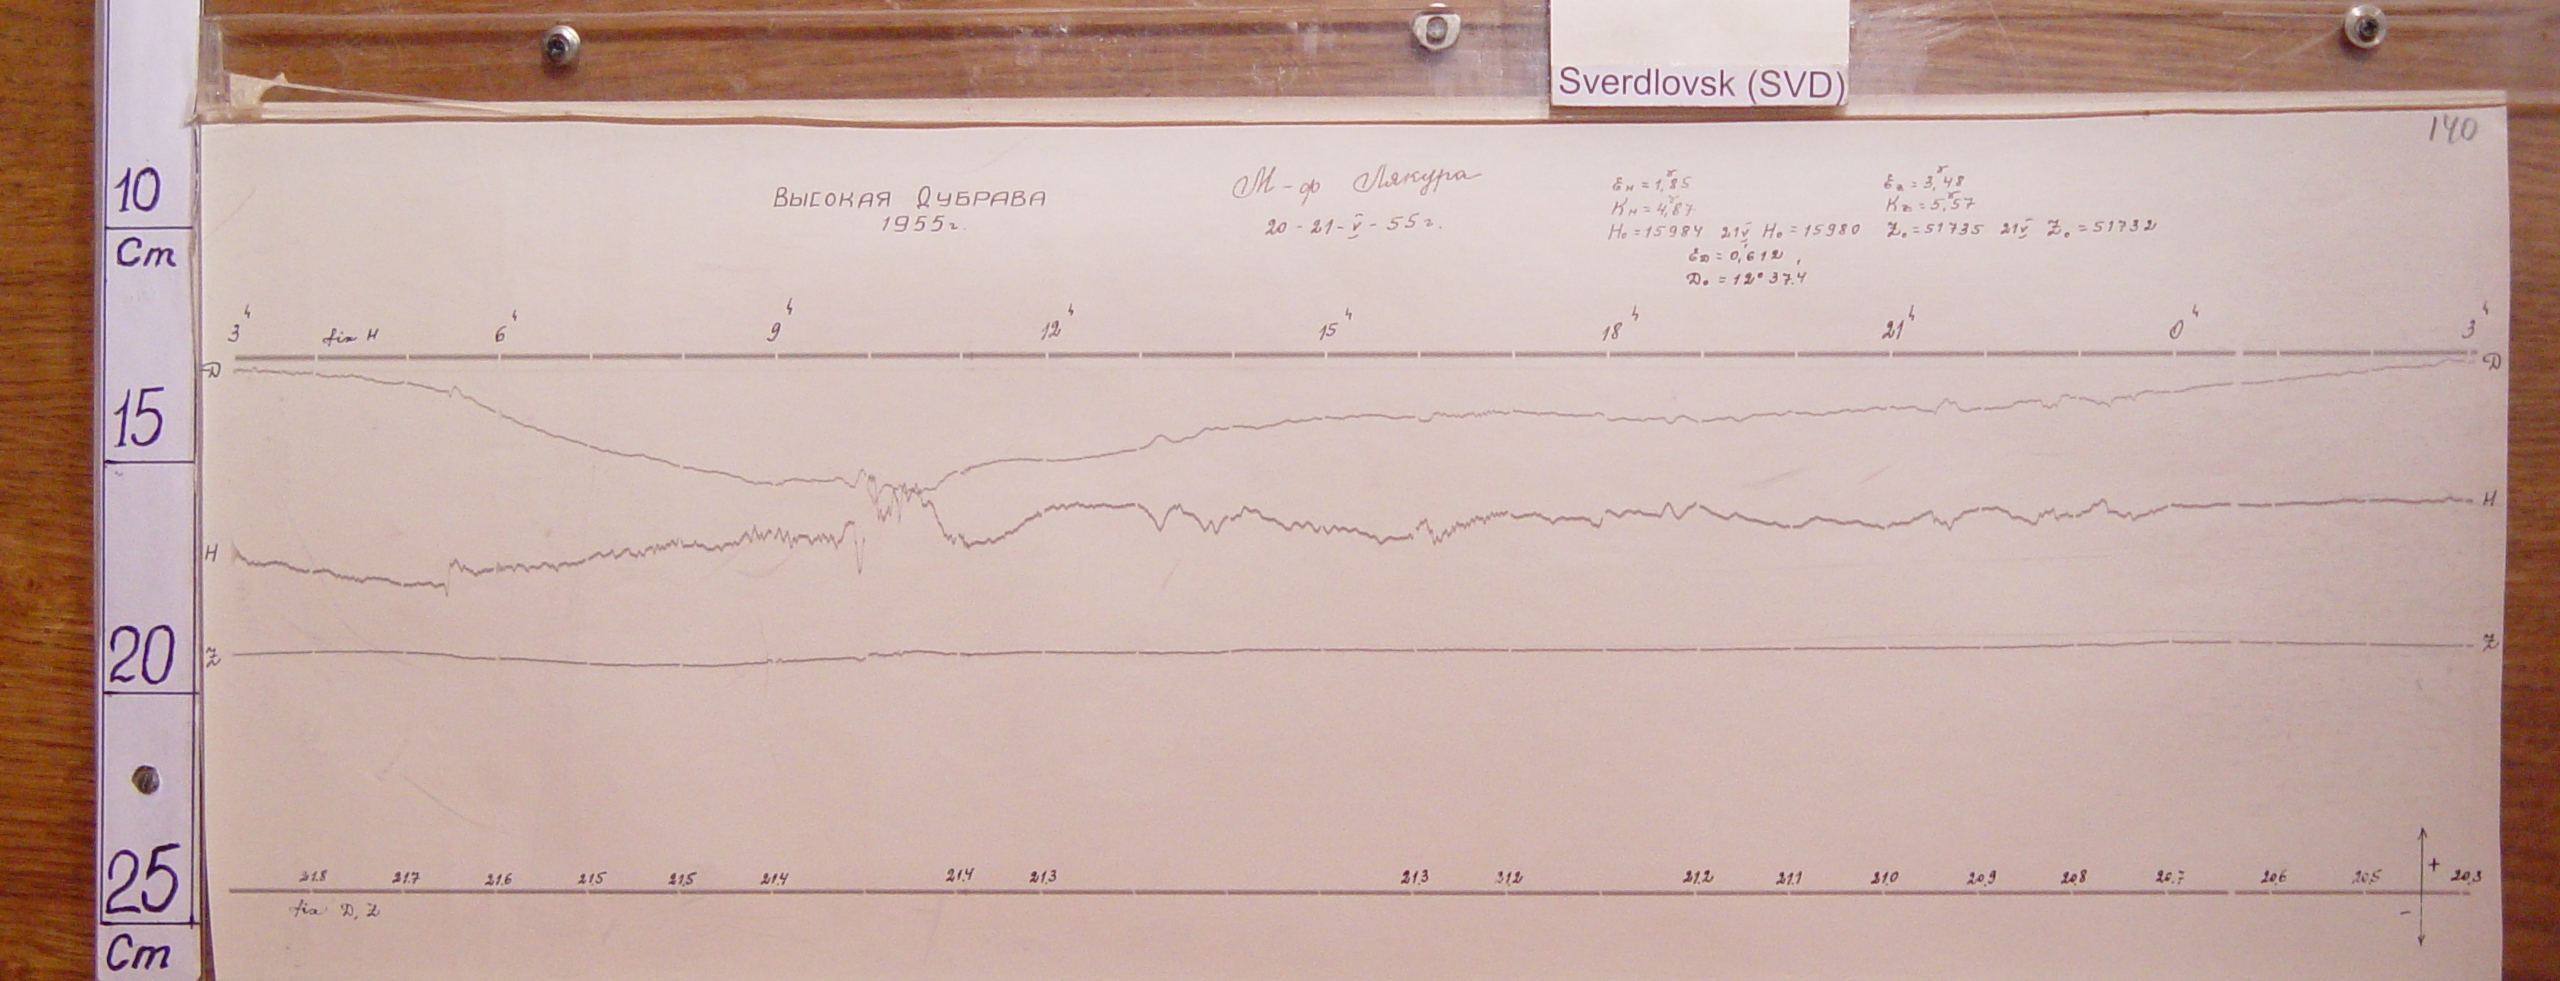 Sverdlovsk (SVD)
140
10
Cm
15
20
25
Cm
ВЫСОКАЯ ДУБРАВА
1955г.
М-ф Лякура
20-21-V-55г.
Ɛн = 1,ˠ85
Kн = 4,ˠ87
H₀ = 15984 21V H₀ = 15980 Z₀ = 51735 21V Z₀ = 51732
Ɛz = 3,ˠ48
Kz = 5,ˠ57
ƐD = 0,′612
D₀ = 12° 37.4
3ʰ fix H 6ʰ 9ʰ 12ʰ 15ʰ 18ʰ 21ʰ 0ʰ 3ʰ
D D
H H
Z Z
21.8 21.7 21.6 21.5 21.5 21.4 21.4 21.3 21.3 21.2 21.2 21.1 21.0 20.9 20.8 20.7 20.6 20.5 20.3
fix D, Z
+
-